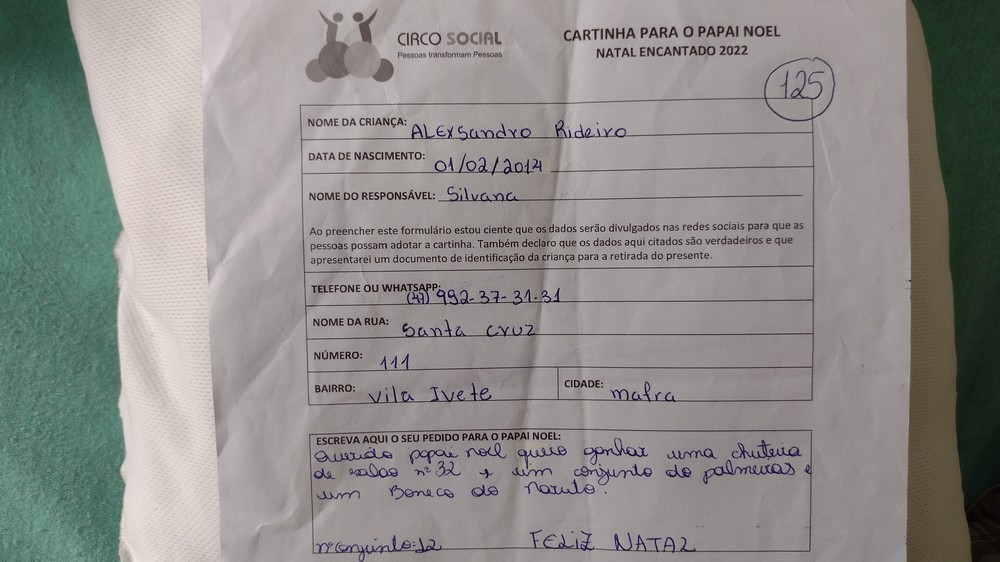 CIRCO SOCIAL
Pessoas transformam Pessoas
CARTINHA PARA O PAPAI NOEL
NATAL ENCANTADO 2022
125
NOME DA CRIANÇA: ALEXSandro Rideiro
DATA DE NASCIMENTO: 01/02/2014
NOME DO RESPONSÁVEL: Silvana
Ao preencher este formulário estou ciente que os dados serão divulgados nas redes sociais para que as
pessoas possam adotar a cartinha. Também declaro que os dados aqui citados são verdadeiros e que
apresentarei um documento de identificação da criança para a retirada do presente.
TELEFONE OU WHATSAPP: (47) 992-37-31-31
NOME DA RUA: Santa Cruz
NÚMERO: 111
BAIRRO: Vila Ivete CIDADE: mafra
ESCREVA AQUI O SEU PEDIDO PARA O PAPAI NOEL:
Querido papai noel quero ganhar uma chuteira
de salao nº 32 + um conjunto do palmeiras e
um Boneco do Naruto.
nº conjunto: 12 FELIZ NATAL